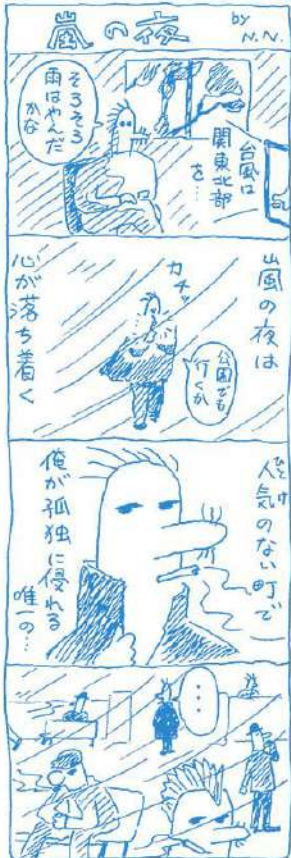 嵐の夜
by
N.N.
台風は
関東北部
を…
そろそろ
雨はやんだ
かな
嵐の夜は
カチッ
公園でも
行くか
心が落ち着く
人気のない町で
ひとけ
俺が孤独に侵れる
唯一の…
…